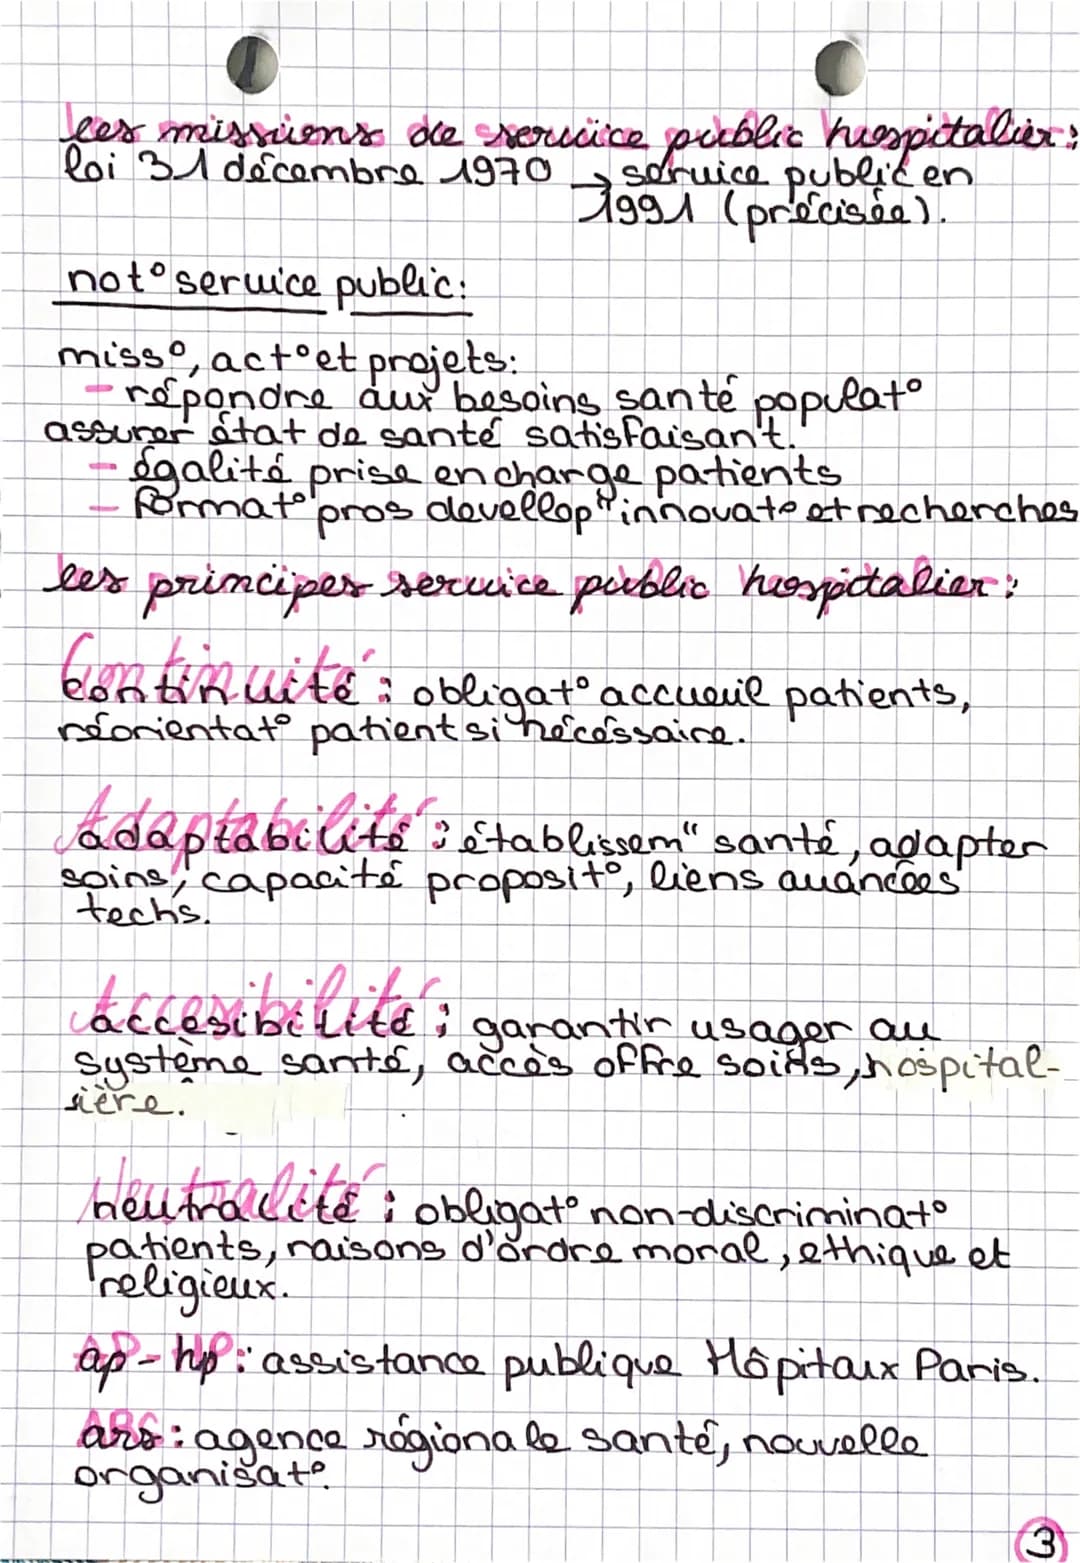 les missions de service public hospitalier:
loi 31 décembre 1970 → service public en
1991 (précisée).
not° service public:
miss°, act° et projets:
- répondre aux besoins santé populat°
assurer état de santé satisfaisant.
- égalité prise en charge patients
- format° pros devellop" innovat° et recherches
les principes service public hospitalier:
Continuité : obligat° accueuil patients,
réorientat° patient si nécessaire.
Adaptabilité : établissem" santé, adapter
soins, capacité proposit°, liens avancées
techs.
Accesibilité : garantir usager au
système santé, accès offre soins, hospital-
ière.
Neutralité : obligat° non-discriminat°
patients, raisons d'ordre moral, ethique et
religieux.
ap-hp : assistance publique Hôpitaux Paris.
ars : agence régionale santé, nouvelle
organisat°.
3